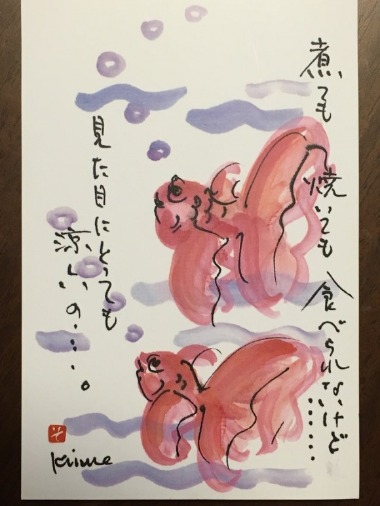 煮ても焼いても食べられないけど……
見た目にとっても
涼しいの…。
Kiime